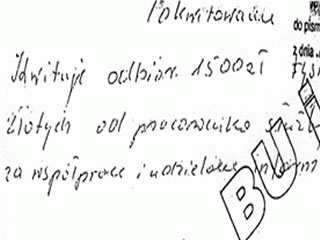 Pokwitowanie
do pism
z dnia
Kwituję odbiór 1500 zł
złotych od pracownika służb
za współpracę i udzielone inform
BU